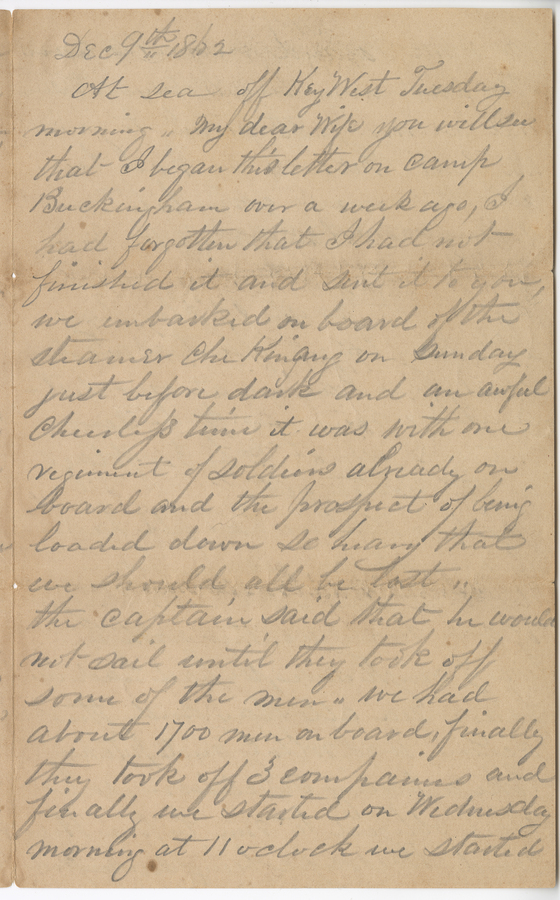 Dec 9th 1862
At sea off Key West Tuesday
morning " My dear Wife you will see
that I began this letter on camp
Buckingham over a week ago, I
had forgotten that I had not
finished it and sent it to you,
we embarked on board of the
steamer Che Kiang on Sunday
just before dark and an awful
time it was with one
regiment of soldiers already on
board and the prospect of being
loaded down so heavy that
we should all be lost "
the captain said that he would
not sail until they took off
some of the men " we had
about 1700 men on board, finally
they took off 3 companies and
finally we started on Wednesday
morning at 11 oclock we started